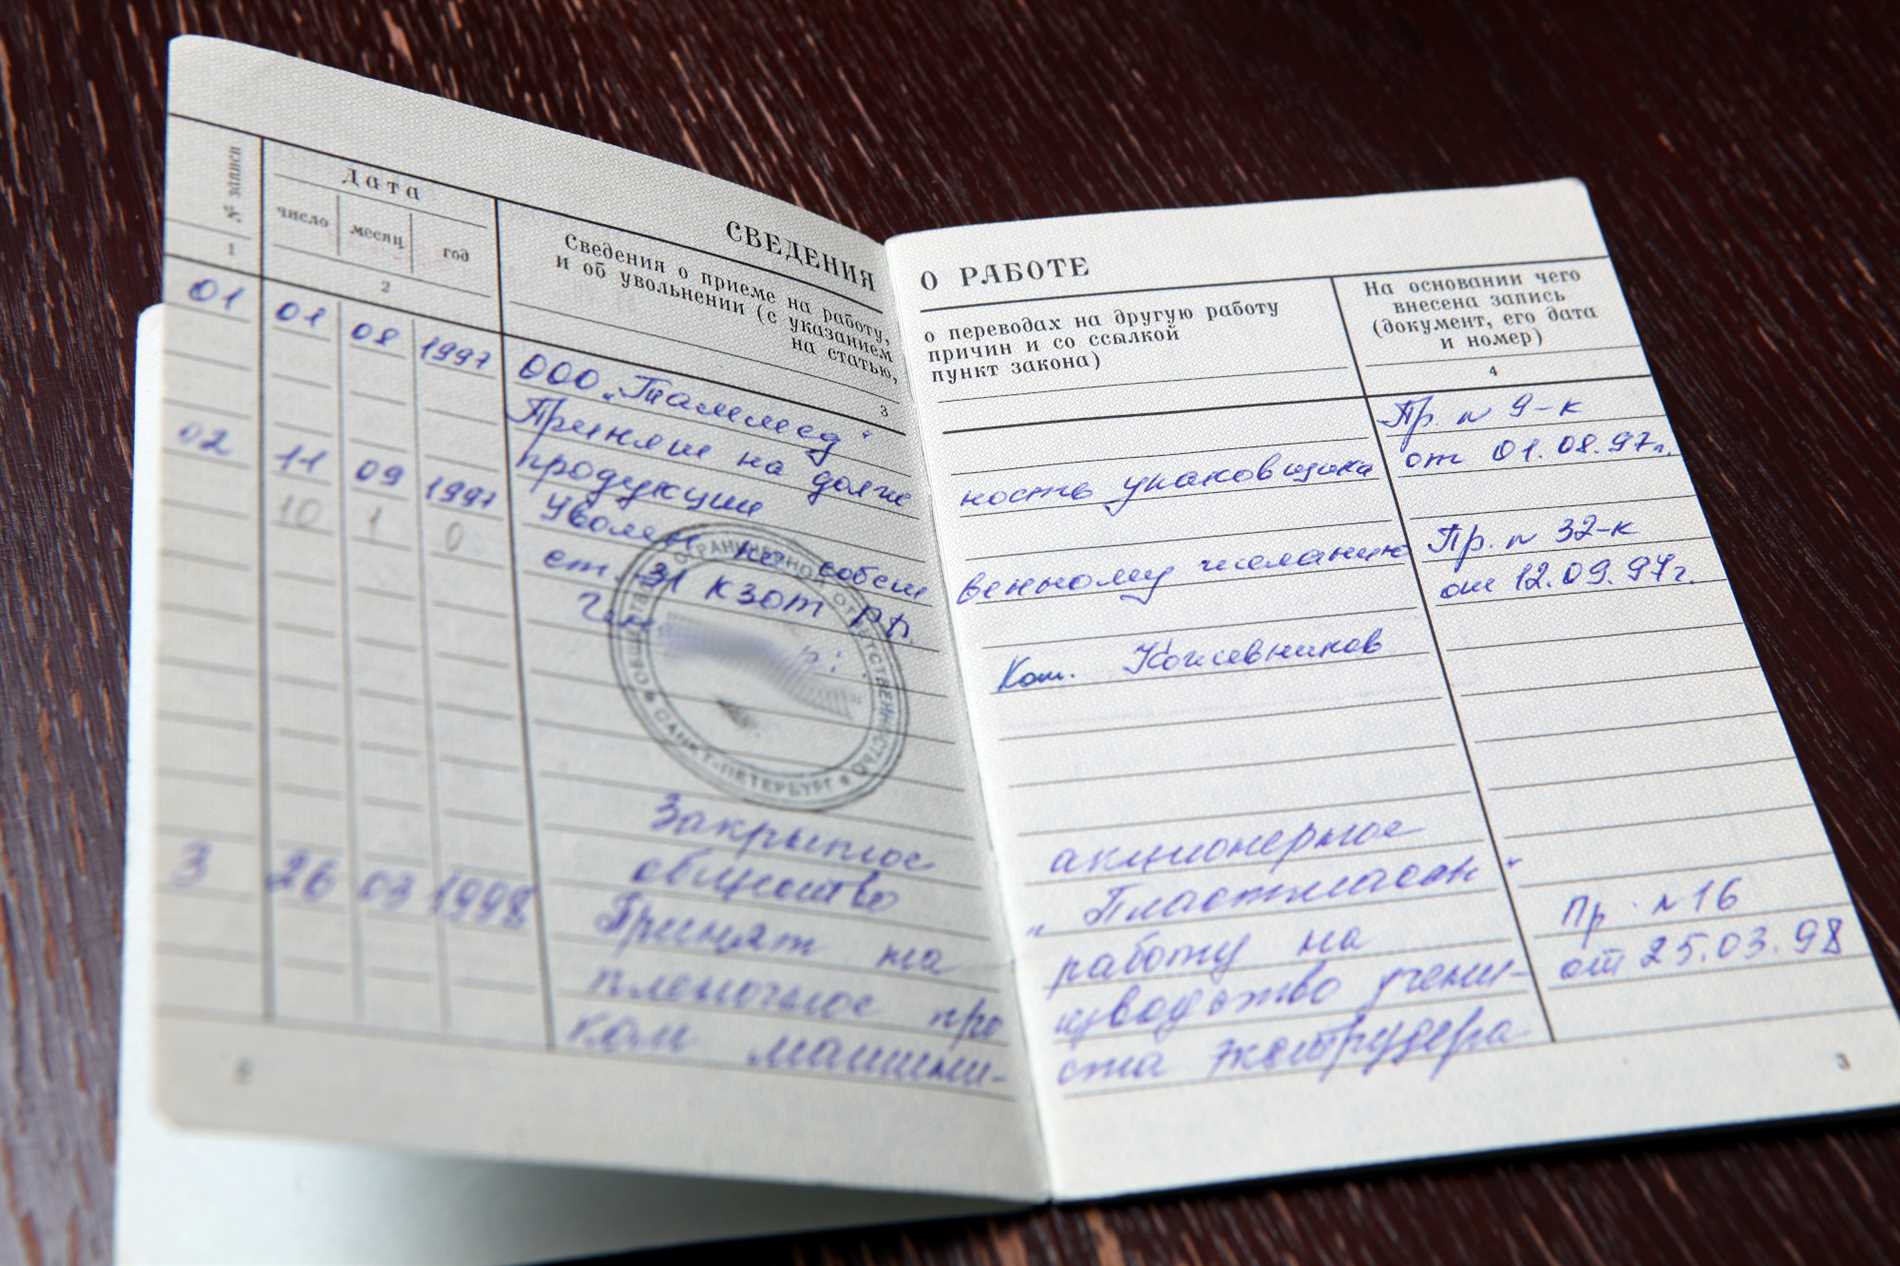 СВЕДЕНИЯ О РАБОТЕ
№ записи
Дата
число месяц год
Сведения о приеме на работу, о переводах на другую работу
и об увольнении (с указанием причин и со ссылкой
на статью, пункт закона)
На основании чего
внесена запись
(документ, его дата
и номер)
1 2 3 4
ООО „Таммед“ Пр. N 9-к
01 01 08 1997 Принят на долж ность упаковщика от 01.08.97г.
продукции
02 11 09 1997 Уволен по собст венному желанию Пр. N 32-к
10 1 0 ст. 31 КЗОТ РФ. от 12.09.97г.
Ген. Кожевников
ОГРАНИЧЕННОЙ ОТВЕТСТВЕННОСТЬЮ
САНКТ-ПЕТЕРБУРГ
Закрытое акционерное
общество „Пластпласт“
3 26 03 1998 Принят на работу на Пр. N 16
пленочное про изводство учени- от 25.03.98
ком машини- ста экструдера
3